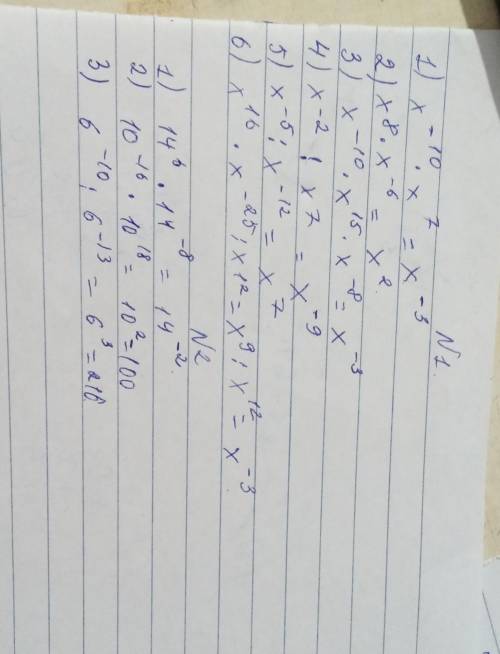 N1.
1) x⁻¹⁰ · x⁷ = x⁻³
2) x⁸ · x⁻⁶ = x²
3) x⁻¹⁰ · x¹⁵ · x⁻⁸ = x⁻³
4) x⁻² : x⁷ = x⁻⁹
5) x⁻⁵ : x⁻¹² = x⁷
6) x¹⁶ · x⁻²⁵ : x¹² = x⁹ : x¹² = x⁻³
N2
1) 14⁶ · 14⁻⁸ = 14⁻²
2) 10⁻¹⁶ · 10¹⁸ = 10² = 100
3) 6⁻¹⁰ : 6⁻¹³ = 6³ = 216